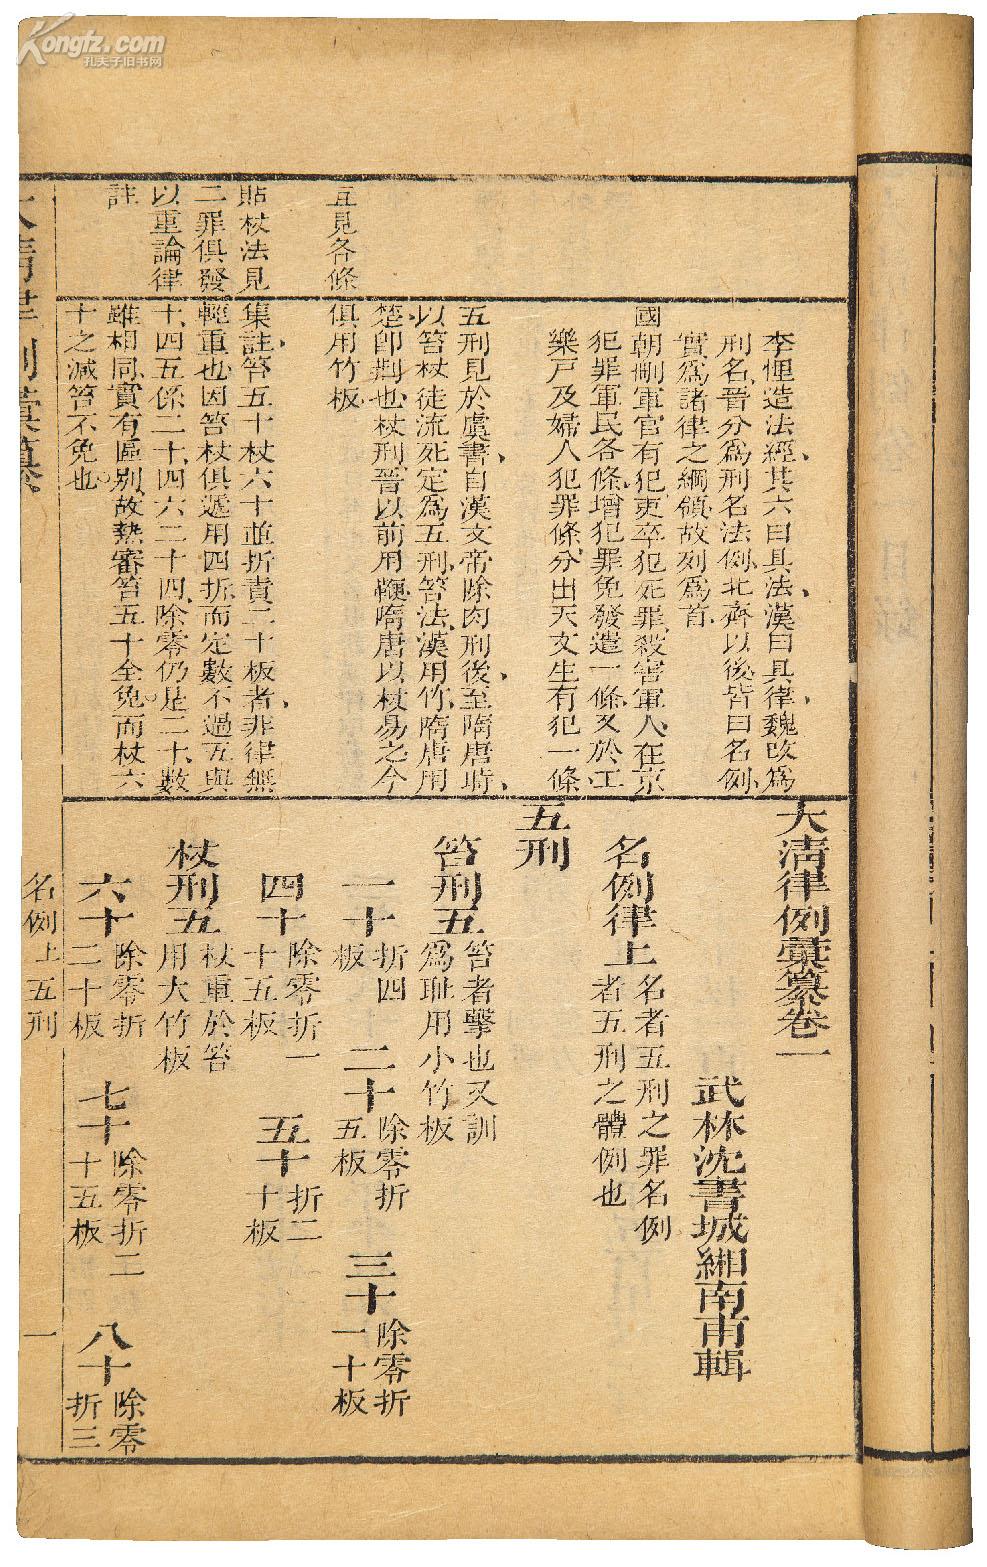 Kongfz.com
孔夫子旧书网
互見各條
貼杖法見
二罪俱發
以重論律
註
李悝造法經其六曰具法漢曰具律魏改為
刑名晉分爲刑名法例北齊以後皆曰名例
實爲諸律之綱領故列爲首
國朝刪軍官有犯吏卒犯死罪殺害軍人在京
犯罪軍民各條增犯罪免發遣一條又於工
樂戸及婦人犯罪條分出天文生有犯一條
五刑見於虞書自漢文帝除肉刑後至隋唐時
以笞杖徒流死定爲五刑笞法漢用竹隋唐用
楚卽荆也杖刑晉以前用鞭隋唐以杖易之今
俱用竹板
集註笞五十杖六十並折責二十板者非律無
輕重也因笞杖俱遞用四折而定數不過五與
十四五係二十四六二十四除零仍是二十數
雖相同實有區别故熱審笞五十全免而杖六
十之減笞不免也
大清律例彙纂卷一
武林沈書城緗南甫輯
名例律上 名者五刑之罪名例
者五刑之體例也
五刑
笞刑五 笞者擊也又訓
爲恥用小竹板
一十 折四
板 二十 除零折
五板 三十 除零折
一十板
四十 除零折一
十五板 五十 折二
十板
杖刑五 杖重於笞
用大竹板
六十 除零折
二十板 七十 除零折二
十五板 八十 除零
折三
大清律例彙纂
名例上 五刑
一